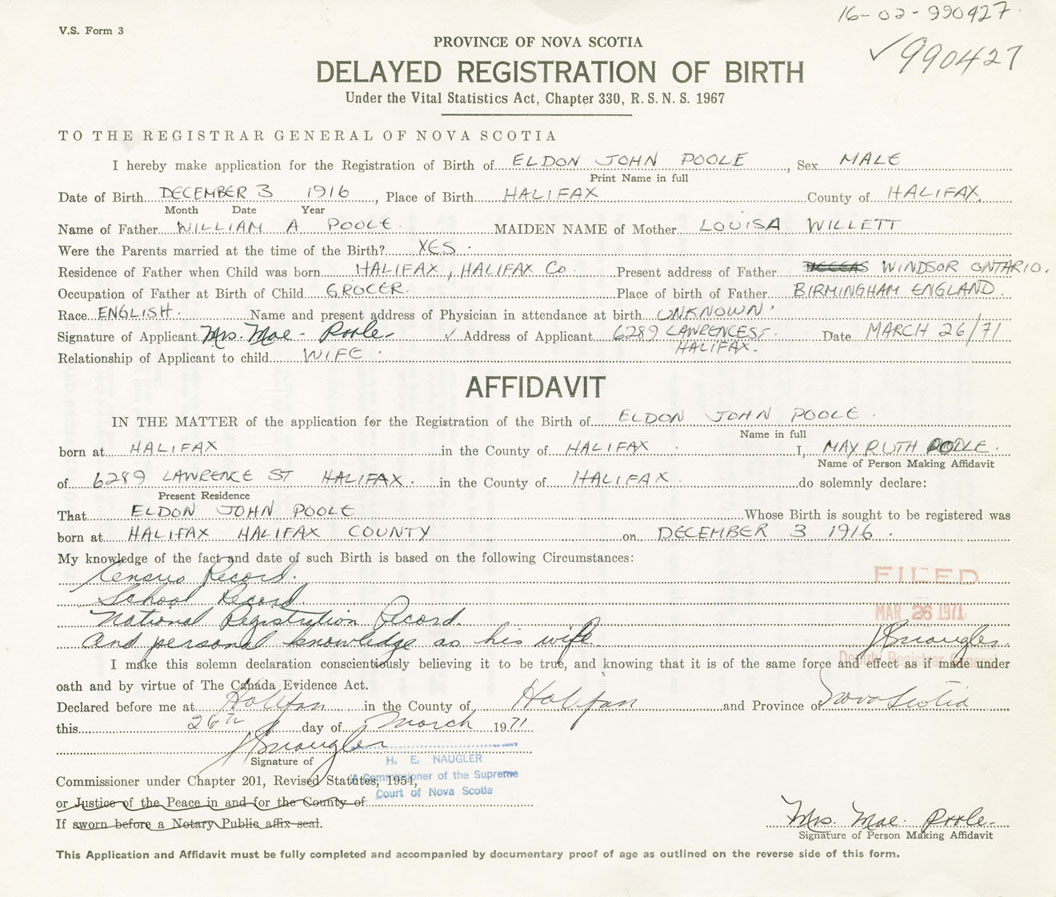 V.S. Form 3
16-02-990427
✓990427
PROVINCE OF NOVA SCOTIA
DELAYED REGISTRATION OF BIRTH
Under the Vital Statistics Act, Chapter 330, R. S. N. S. 1967
TO THE REGISTRAR GENERAL OF NOVA SCOTIA
I hereby make application for the Registration of Birth of ELDON JOHN POOLE, Sex MALE
Print Name in full
Date of Birth DECEMBER 3 1916, Place of Birth HALIFAX County of HALIFAX
Month Date Year
Name of Father WILLIAM A POOLE MAIDEN NAME of Mother LOUISA WILLETT
Were the Parents married at the time of the Birth? YES.
Residence of Father when Child was born HALIFAX, HALIFAX Co Present address of Father WINDSOR ONTARIO.
Occupation of Father at Birth of Child GROCER. Place of birth of Father BIRMINGHAM ENGLAND.
Race ENGLISH. Name and present address of Physician in attendance at birth UNKNOWN.
Signature of Applicant Mrs. Mae Poole ✓ Address of Applicant 6289 LAWRENCE ST. Date MARCH 26/71
HALIFAX.
Relationship of Applicant to child WIFE.
AFFIDAVIT
IN THE MATTER of the application for the Registration of the Birth of ELDON JOHN POOLE.
Name in full
born at HALIFAX in the County of HALIFAX. I, MAY RUTH POOLE.
Name of Person Making Affidavit
of 6289 LAWRENCE ST HALIFAX. in the County of HALIFAX. do solemnly declare:
Present Residence
That ELDON JOHN POOLE Whose Birth is sought to be registered was
born at HALIFAX HALIFAX COUNTY on DECEMBER 3 1916.
My knowledge of the fact and date of such Birth is based on the following Circumstances:
Census Record.
FILED
School Record
MAR 26 1971
National Registration Record.
And personal knowledge as his wife. Naugler
Deputy Registrar
I make this solemn declaration conscientiously believing it to be true, and knowing that it is of the same force and effect as if made under
oath and by virtue of The Canada Evidence Act.
Declared before me at Halifax in the County of Halifax and Province of Nova Scotia
this 26th day of March 1971
Naugler
Signature of
H. E. NAUGLER
A Commissioner of the Supreme
Court of Nova Scotia
Commissioner under Chapter 201, Revised Statutes, 1954,
or Justice of the Peace in and for the County of
If sworn before a Notary Public affix seal.
Mrs. Mae Poole
Signature of Person Making Affidavit
This Application and Affidavit must be fully completed and accompanied by documentary proof of age as outlined on the reverse side of this form.